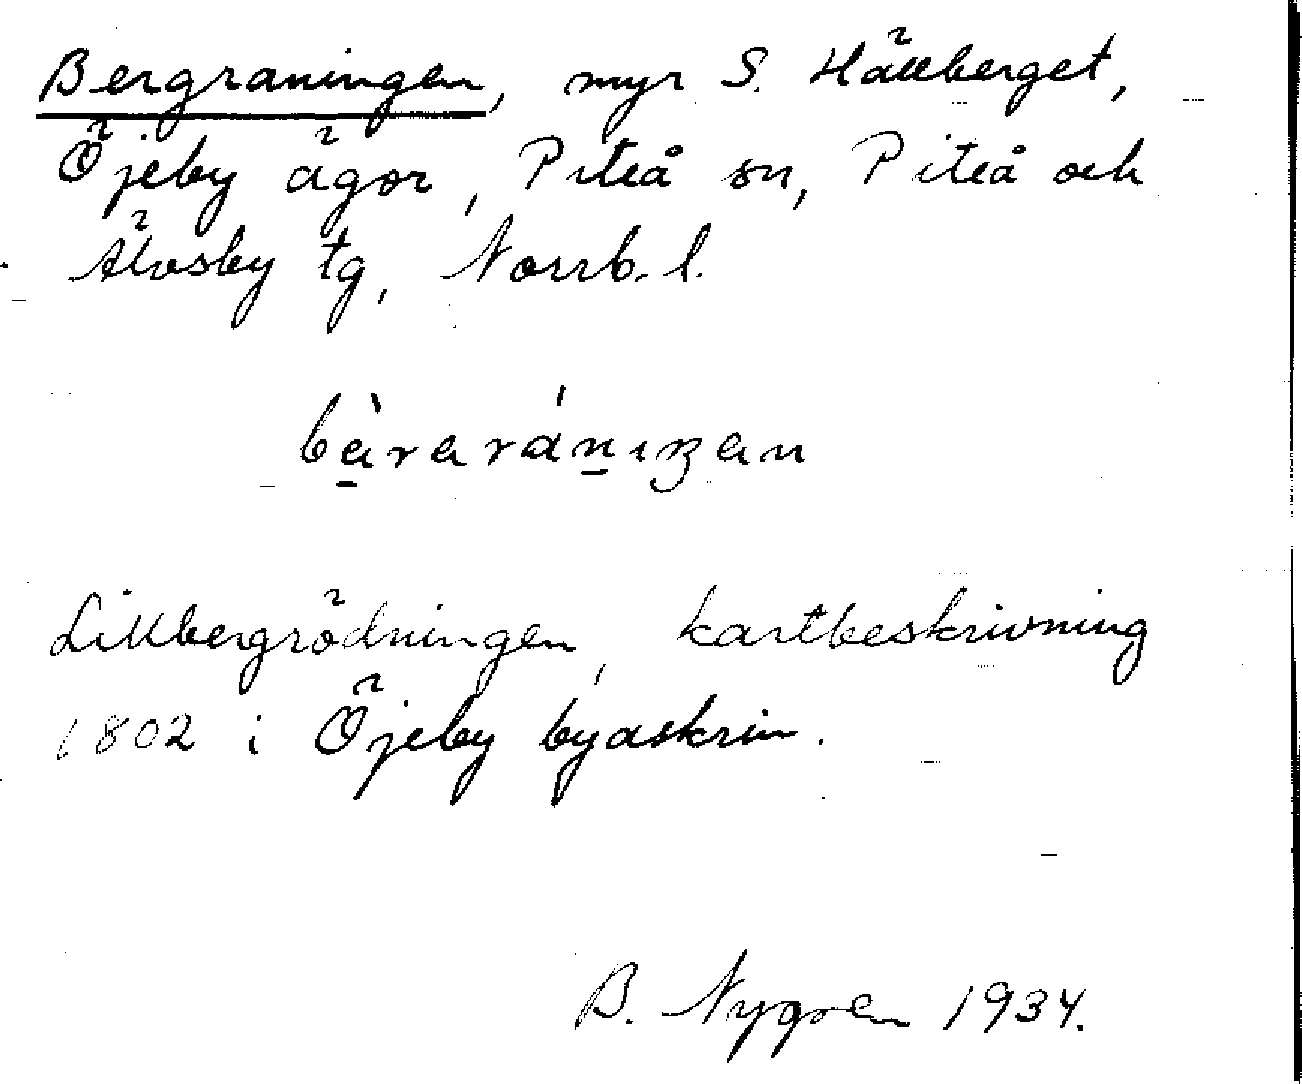 Bergraningen, myr S. Hällberget,
Öjeby ägor, Piteå sn, Piteå och
Älvsby tg, Norrb. l.
bàraránıŋan
Lillbergrödningen, kartbeskrivning
1802 i Öjeby byaskrin.
B. Nygren 1934.